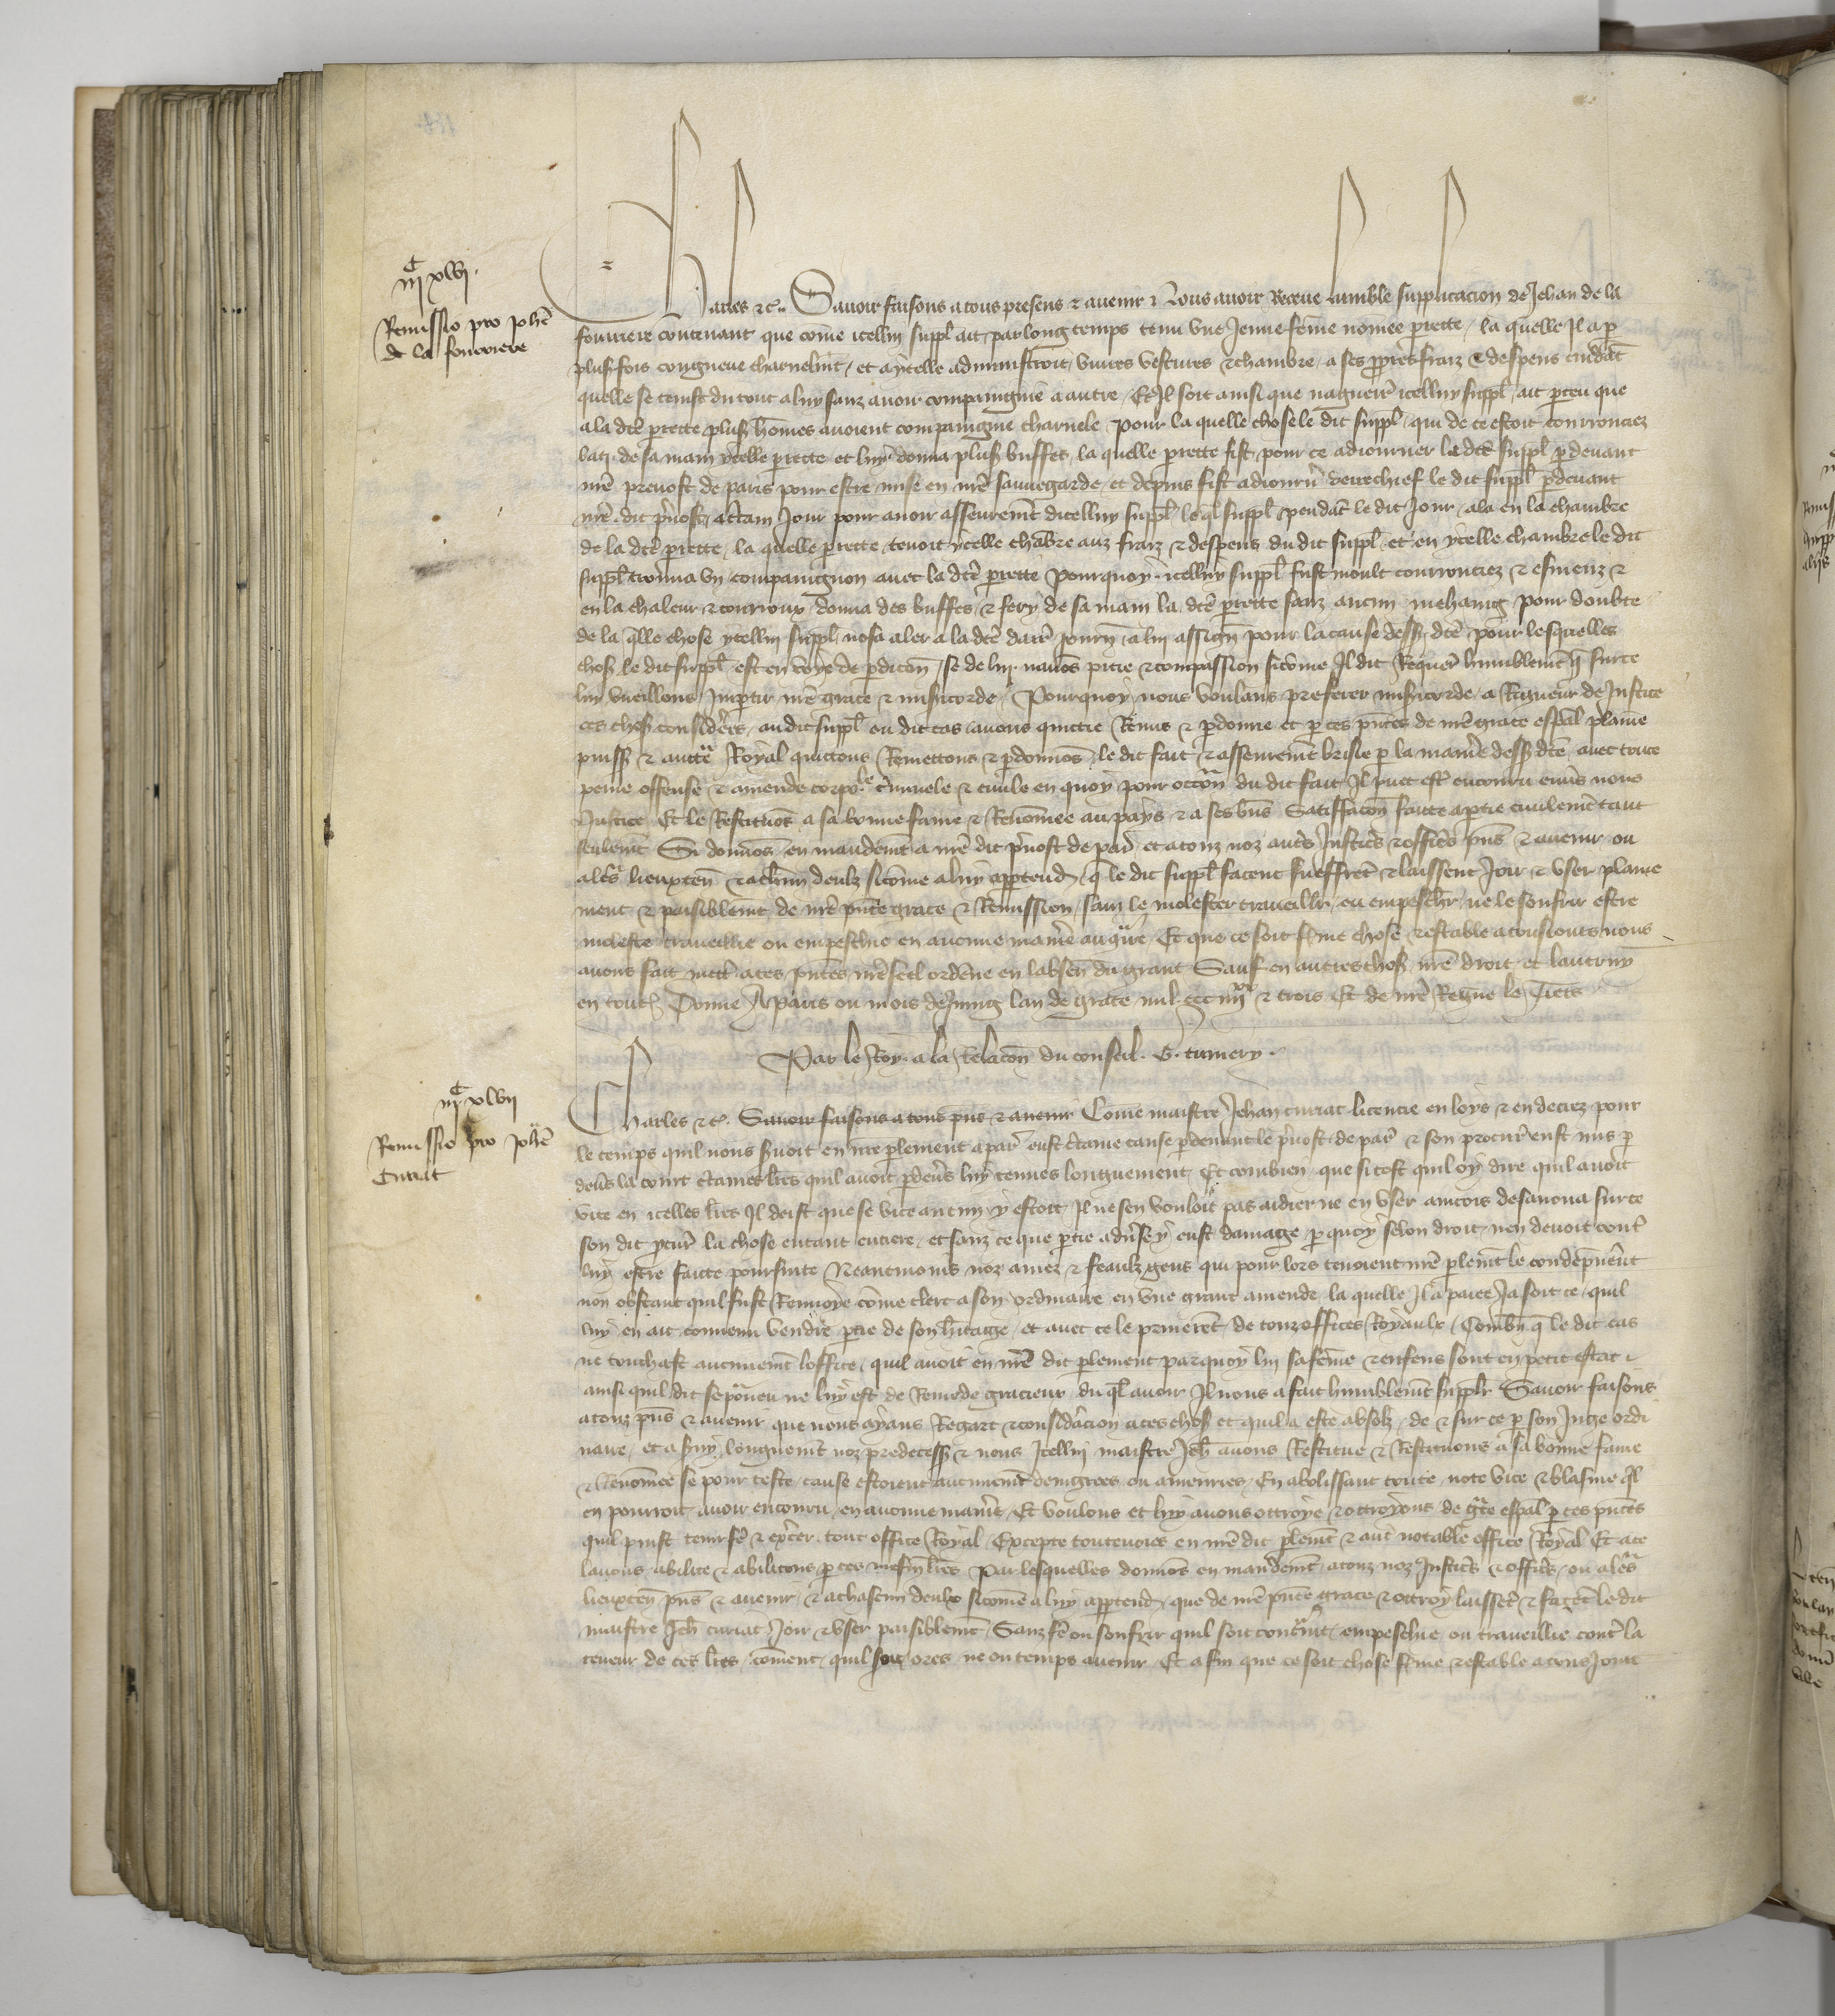 iijᶜ xlvj.
Remissio pro Johē
de la fourriere
Charles etc. Savoir faisons a tous presens et avenir Nous avoir receue humble supplicacion de Jehan de la
fourriere contenant que come icelluy suppl ait par long temps tenu une jeune feme nomee perrette la quelle il a p
plusfois congneue charnelmt et a ycelle administroit vivres vestures et chambre a ses ppres fraiz et despens cuidāt
quelle se tenist du tout a luy sanz avoir compaingnie a autre Et il soit ainsi que naguere icelluy suppl ait pceu que
a la dce perrette plus homes avoient compaingnie charnele Pour la quelle chose le dit suppl qui de ce estoit courrouciez
bati de sa main ycelle perrette et luy donna plus buffes la quelle perrette fist pour ce adjourner le dit suppl pdevant
nre prevost de paris pour estre mise en nre sauvegarde et depuis fist adjourn derrechief le dit suppl pdevant
nre dit pvost a ctain jour pour avoir asseuremt dicelluy suppl le ql suppl pendāt le dit jour ala en la chambre
de la dce perrette la quelle perrette tenoit ycelle chābre aux fraiz et despens du dit suppl et en ycelle chambre le dit
suppl trouva un compaingnon avec la dce perrette Pourquoy icelluy suppl fust moult courrouciez et esmeuz et
en la chaleur et courroux donna des buffes et fery de sa main la dce perrette sanz aucun mehaing pour doubte
de la qlle chose ycelluy suppl nosa aler a la dce darre journ a lui assign pour la cause dess dce pour lesquelles
chos le dit suppl est en voye de pdicon se de luy navos pitie et compassion sicome il dit Requer humblemt q surce
luy vueillons impartir nre grace et misicorde Pourquoy nous voulans preferer misicorde a rigueur de justice
ces chos considerees au dit suppl ou dit cas avons quictie remis et pdonne et p ces pntes de nre grace espal plaine
puiss et auctte Royal quictons remettons et pdonnos le dit fait et asseuremt brisie p la maniere dess dce avec toute
peine offense et amende corporele criminele et civile en quoy pour occon du dit fait il puet est encouru envs nous
Justice Et le restituos a sa bonne fame et renomee au pays et a ses bns Satiffacon faicte a ptie civilemt tant
seulemt Si donnos en mandemt a nre dit pvost de paris et a touz noz autres justiciers et officiers pns et avenir ou
a leurs lieuxten et a chun deulz sicome a luy apptend q le dit suppl facent sueffrent et laissent joir et user plaine
ment et paisiblemt de nre pnte grace et remission sanz le molester travaillr ou empeschr ne le soufrir estre
moleste travaillie ou empeschie en aucune maniere au contre Et que ce soit fme chose et estable a tousjours nous
avons fait mett a ces pntes nre seel ordene en labsence du grant Sauf en autres chos nre droit et lautruy
en toutes Donne A paris ou mois de juing lan de grace mil ccc iiijxx et trois Et de nre Regne le tiers
Par le Roy a la relacon du conseil. G. tumery.
iijᶜ xlvij
Remissio pro Johē
Curiat
Charles etc. Savoir faisons a tous pns et avenir Come maistre Jehan curiat licencie en loys et en decrez pour
le temps quil nous suoit en nre plement a par eust ctaine cause pdevant le pvost de par et son procur eust mis p
devs la court ctaines lres quil avoit pdevs luy tenues longuement Et combien que si tost quil oy dire quil avoit
vice en icelles lres il deist que se vice aucun y estoit il ne sen vouloit pas aidier ne en user aincois desavoua surce
son dit pcur la chose entant entiere et sanz ce que ptie adverse y eust damage p quoy selon droit nen devoit contr
luy estre faicte poursuite Neantmoins noz amez et feaulz gens qui pour lors tenoient nre plemt le condempnerent
non obstant quil fust renvoye come clerc a son ordinaire en une grant amende la quelle il a paiee Ja soit ce quil
luy en ait convenu vendre ptie de son heritage et avec ce le priverent de touz offices Royaulx Combn q le dit cas
ne touchast aucunemt loffice quil avoit en nre dit plement parquoy lui sa feme et enfens sont en petit estat
ainsi quil dit se pourveu ne luy est de remede gracieux du ql avoir il nous a fait humblemt supplr Savoir faisons
a touz pns et avenir que nous ayans regart et consideracion a ces chos et quil a este absolz de et sur ce p son juge ordi
naire et a suy longuemt noz predecess et nous icelluy maistre Jeh avons restitue et restituons a sa bonne fame
et renomee se pour ceste cause estoient aucunemt denigrees ou amenries En abolissant toute note vice et blasme ql
en pourroit avoir encouru en aucune maniere Et voulons et luy avons ottroye et ottroyons de gce espal p ces pntes
quil puist tenir fe et exercer tout office Royal Excepte toutevoies en nre dit plemt et autre notable office Royal Et a ce
lavons abilite et abilitons p ces mesmes lres Par lesquelles donnos en mandemt a touz noz justiciers et officiers ou a leurs
lieuxten pns et avenir et a chascun deulx sicome a luy apptend que de nre pnte grace et ottroy laissent et facent le dit
maistre Jeh curiat joir et user paisiblemt Sanz fe ou soufrir quil soit contraint empeschie ou travaillie contr la
teneur de ces lres coment quil soit ores ne ou temps avenir Et afin que ce soit chose fme et estable a tous jours